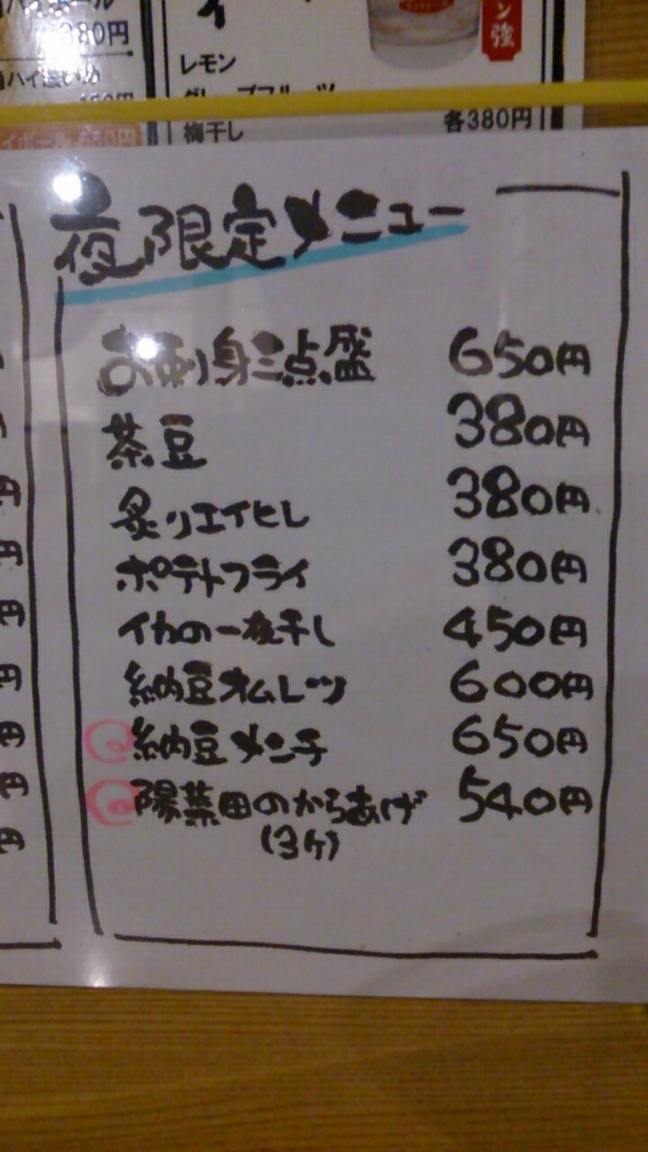 380円
レモン
梅干し
各380円
夜限定メニュー
お刺身三点盛 650円
茶豆 380円
炙りエイヒレ 380円
ポテトフライ 380円
イカの一夜干し 450円
納豆オムレツ 600円
納豆メンチ 650円
陽菜田のからあげ 540円
(3ヶ)